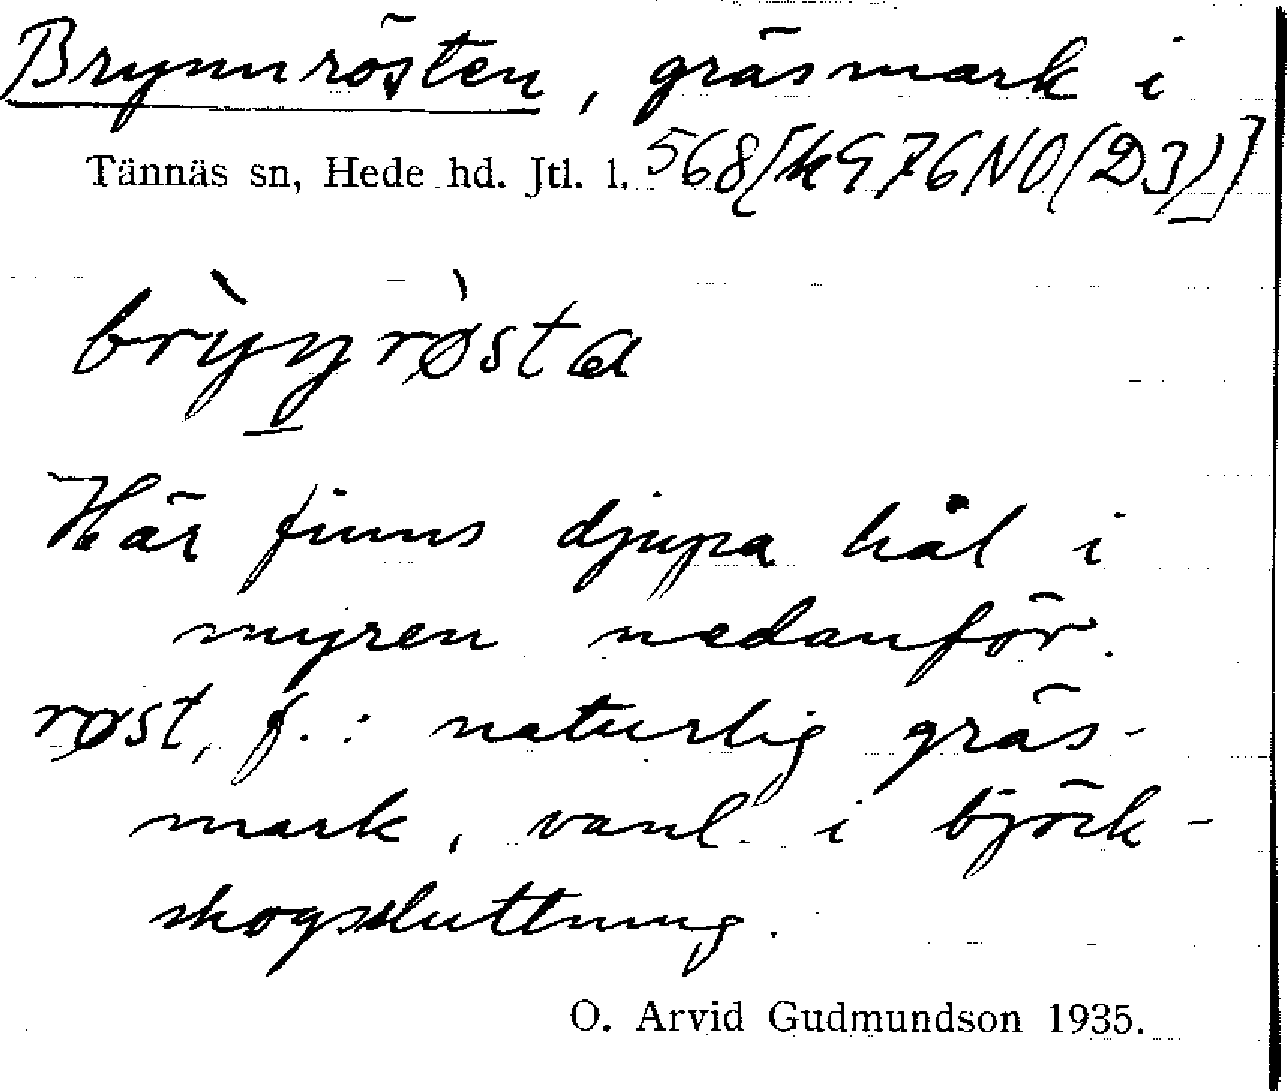 Brynnrösten, gräsmark i
Tännäs sn, Hede hd. Jtl. l. 568[k976NO(D3)]
brỳŋrø̀sta
Här finns djupa hål i
myren nedanför.
røst, f.: naturlig gräs-
mark, vanl. i björk-
skogssluttning.
O. Arvid Gudmundson 1935.